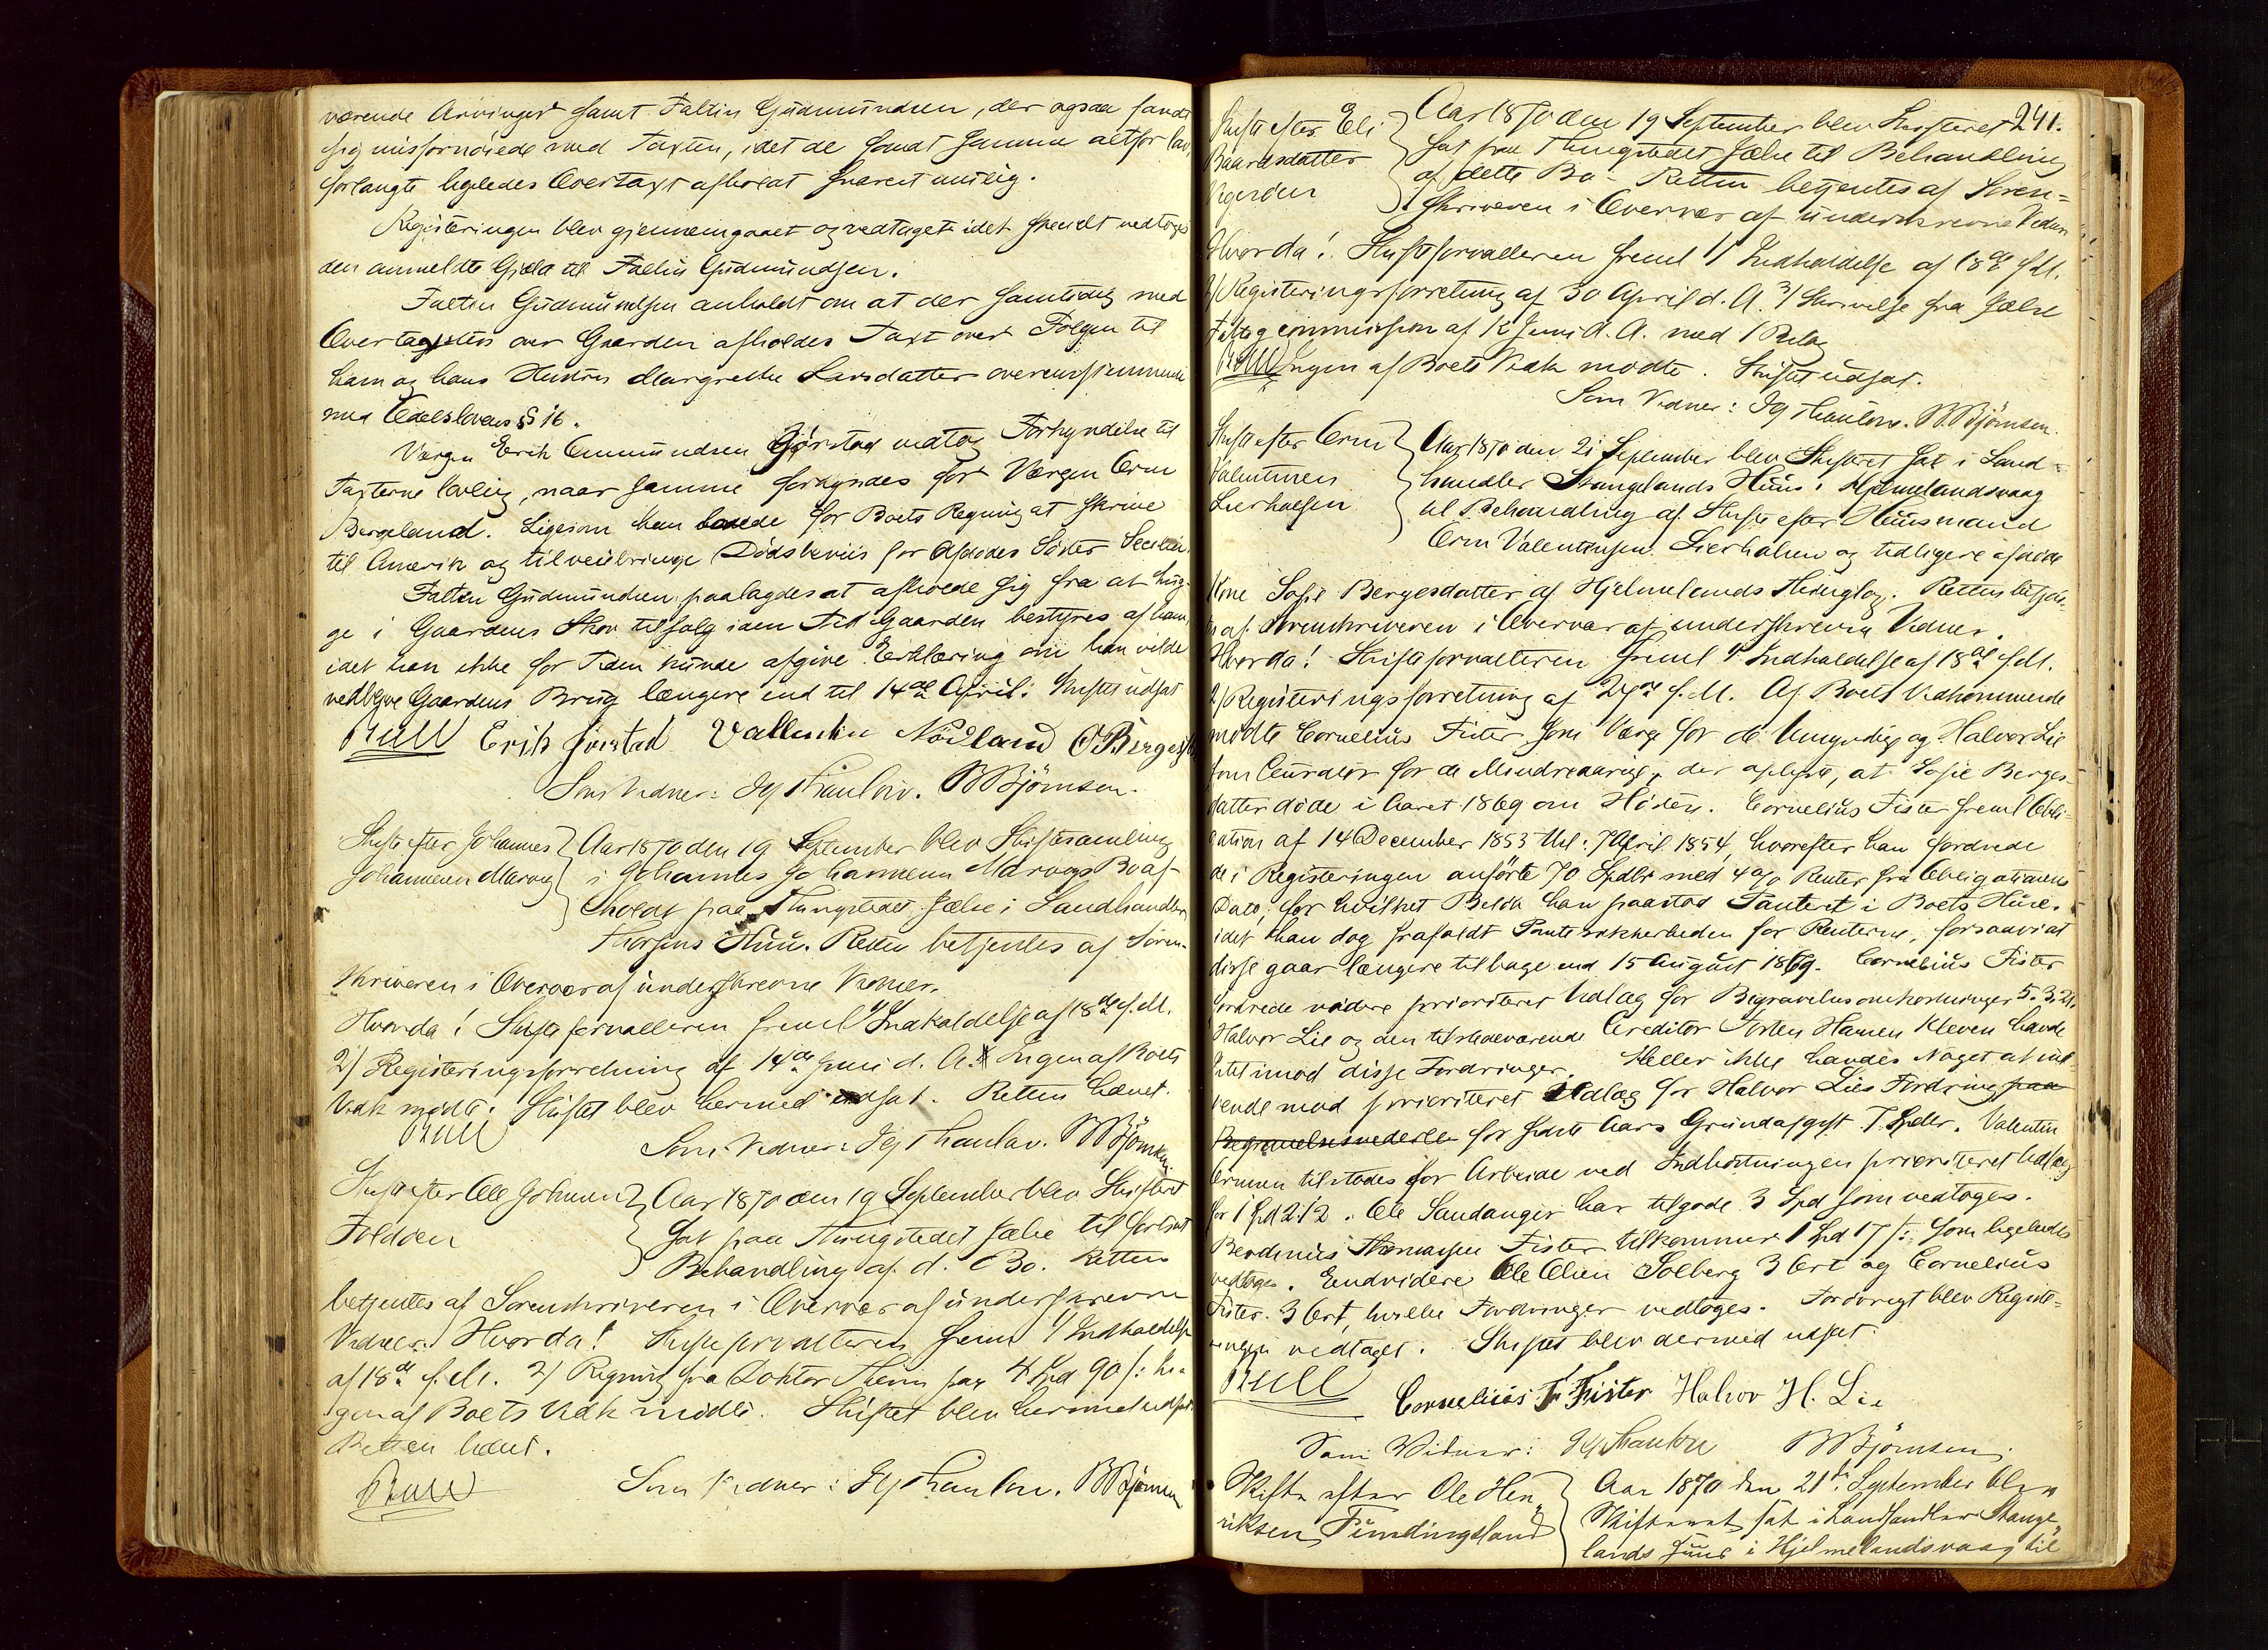 værende Arvinger samt Faltin Gudmundsen, der ogsaa fandt
sig misfornöiede med Taxten, idet de fandt samme altfor lav,
forlangte ligeledes Overtaxt afholdt snarest mulig.
Registeringen blev gjennemgaaet og vedtaget idet specielt vedtoges
den anmeldte Gjeld til Faltin Gudmundsen.
Faltin Gudmundsen anholdt om at der samtidig med
Overtaxten over Gaarden afholdes Taxt over Folgen til
ham og hans Hustru Margrethe Larsdatter overensstemmende
med Odelslovens § 16.
Værgen Erik Ommundsen Gjörstad vedtog Forkyndelse til
Taxterne lovlig, naar samme forkyndes for Værgen Orm
Bergeland. Ligesom han lovede for Boets Regning at skrive
til Amerik og tilveiebringe Dödsbeviis for Afdödes Söster Secilia.
Faltin Gudmundsen paalagdes at afholde sig fra at hug-
ge i Gaardens Skov tilsalg i den Tid Gaarden bestyres af ham,
idet han ikke for Tiden kunde afgive Erklæring om han vilde
vedblive Gaardens Brug længere end til 14de April. Skiftet udsat
Erik Jörstad Vallentin Nödland O Berge
Som Vidner: Jg Thaulow. B Björnsen.
Skifte efter Johannes
Johannesen Marvig
Aar 1870 den 19 September blev Skiftesamling
i Johannes Johannesen Marvigs Bo af-
holdt paa Thingstedet Jælse i Landhandler
Huus. Retten betjentes af Soren-
skriveren i Overvær af underskrevne Vidner.
Hvorda! Skifteforvalteren freml 1/ Indkaldelse af 18de f. M.
2/ Registeringsforretning af 14de Juni d. A. Ingen af Boets
Vedk mödte. Skiftet blev hermed udsat. Retten hævet.
Som Vidner: Jg Thaulow. B Björnsen
Skifte efter Ole Johnsen
Foldöen
Aar 1870 den 19 September blev Skifteret
sat paa Thingstedet Jælse til fortsat
Behandling af d. Bo. Retten
betjentes af Sorenskriveren i Overvær af underskrevne
Vidner. Hvorda! Skifteforvalteren freml 1/ Indkaldelse
af 18de f. M. 2/ Regning fra Doktor paa 4 Spd 90 s: In-
gen af Boets Vedk mödte. Skiftet blev hermed udsat.
Retten hævet.
Som Vidner: Jg Thaulow. B Björnsen
241.
Skifte efter Eli
Baardsdatter
Aar 1870 den 19 September blev Skifteret
sat paa Thingstedet Jælse til Behandling
af dette Bo. Retten betjentes af Soren-
skriveren i Overvær af underskrevne Vidner
Hvorda! Skifteforvalteren freml 1/ Indkaldelse af 18de f. M.
2/ Registeringsforretning af 30 April d. A. 3/ Skrivelse fra Jælse
commission af 12 Juni d. A. med 1 Bilag
Ingen af Boets Vedk mödte. Skiftet udsat.
Som Vidner: Jg Thaulow. B Björnsen.
Skifte efter Orm
Valentinsen
Lierhalsen
Aar 1870 den 21 September blev Skifteret sat i Land-
handler Stangelands Huus i Hjelmelandsvaag
til Behandling af Skifte efter Huusmand
Orm Valentinsen Lierhalsen og tidligere afdöde
Kone Sofie Bergesdatter af Hjelmelands Thinglag. Retten betjen-
tes af Sorenskriveren i Overvær af underskrevne Vidner.
Hvorda! Skifteforvalteren freml 1/ Indkaldelse af 18de f. M.
2/ Registeringsforretning af 24de f. M. Af Boets Vedkommende
mödte Cornelius Fister som Værge for de Umyndige og Halvor Lie
som Curator for de Mindreaarige, der oplyste, at Sofie Berges-
datter döde i Aaret 1869 om Hösten. Cornelius Fister freml Obli-
gation af 14 December 1853 thl: 7 April 1854, hvorefter han fordrede
de i Registeringen anförte 70 Spdlr med 4 % Renter fra Obligationens
Dato, for hvilket Belöb han paastod Panteret i Boets Huse,
idet han dog frafaldt Pantesikkerheden for Renterne, forsaavidt
disse gaar længere tilbage end 15 August 1869. Cornelius Fister
fordrede videre prioriteret Udlæg for Begravelsesomkostninger 5.3.21.
Halvor Lie og den tilstedeværende Creditor Torsten Hansen Kleven havde
Intet imod disse Fordringer. Heller ikke havdes Noget at ind-
vende mod prioriteret Udlæg for Halvor Lies Fordring paa
Begravelses for sidste Aars Grundafgift 7 Spdlr. Valentin
Ormsen tilstodes for Arbeide ved Indhöstningen prioriteret Udlæg
for 1 Spd 2.12. Ole Sandanger har tilgode 3 Spd som vedtoges.
Berdinius Thomassen Fister tilkommer 1 Spd 17 s: som ligeledes
vedtoges. Endvidere Ole Olsen Solberg 3 Ort og Cornelius
Fister 3 Ort, hvilke Fordringer vedtoges. Forövrigt blev Registe-
ringen vedtaget. Skiftet blev dermed udsat.
Cornelius T Fister Halvor H. Lie
Som Vidner: Jg Thaulow B Björnsen.
Skifte efter Ole Hen-
riksen Fundingsland
Aar 1870 den 21de September blev
Skifteret sat i Landhandler Stange-
lands Huus i Hjelmelandsvaag til